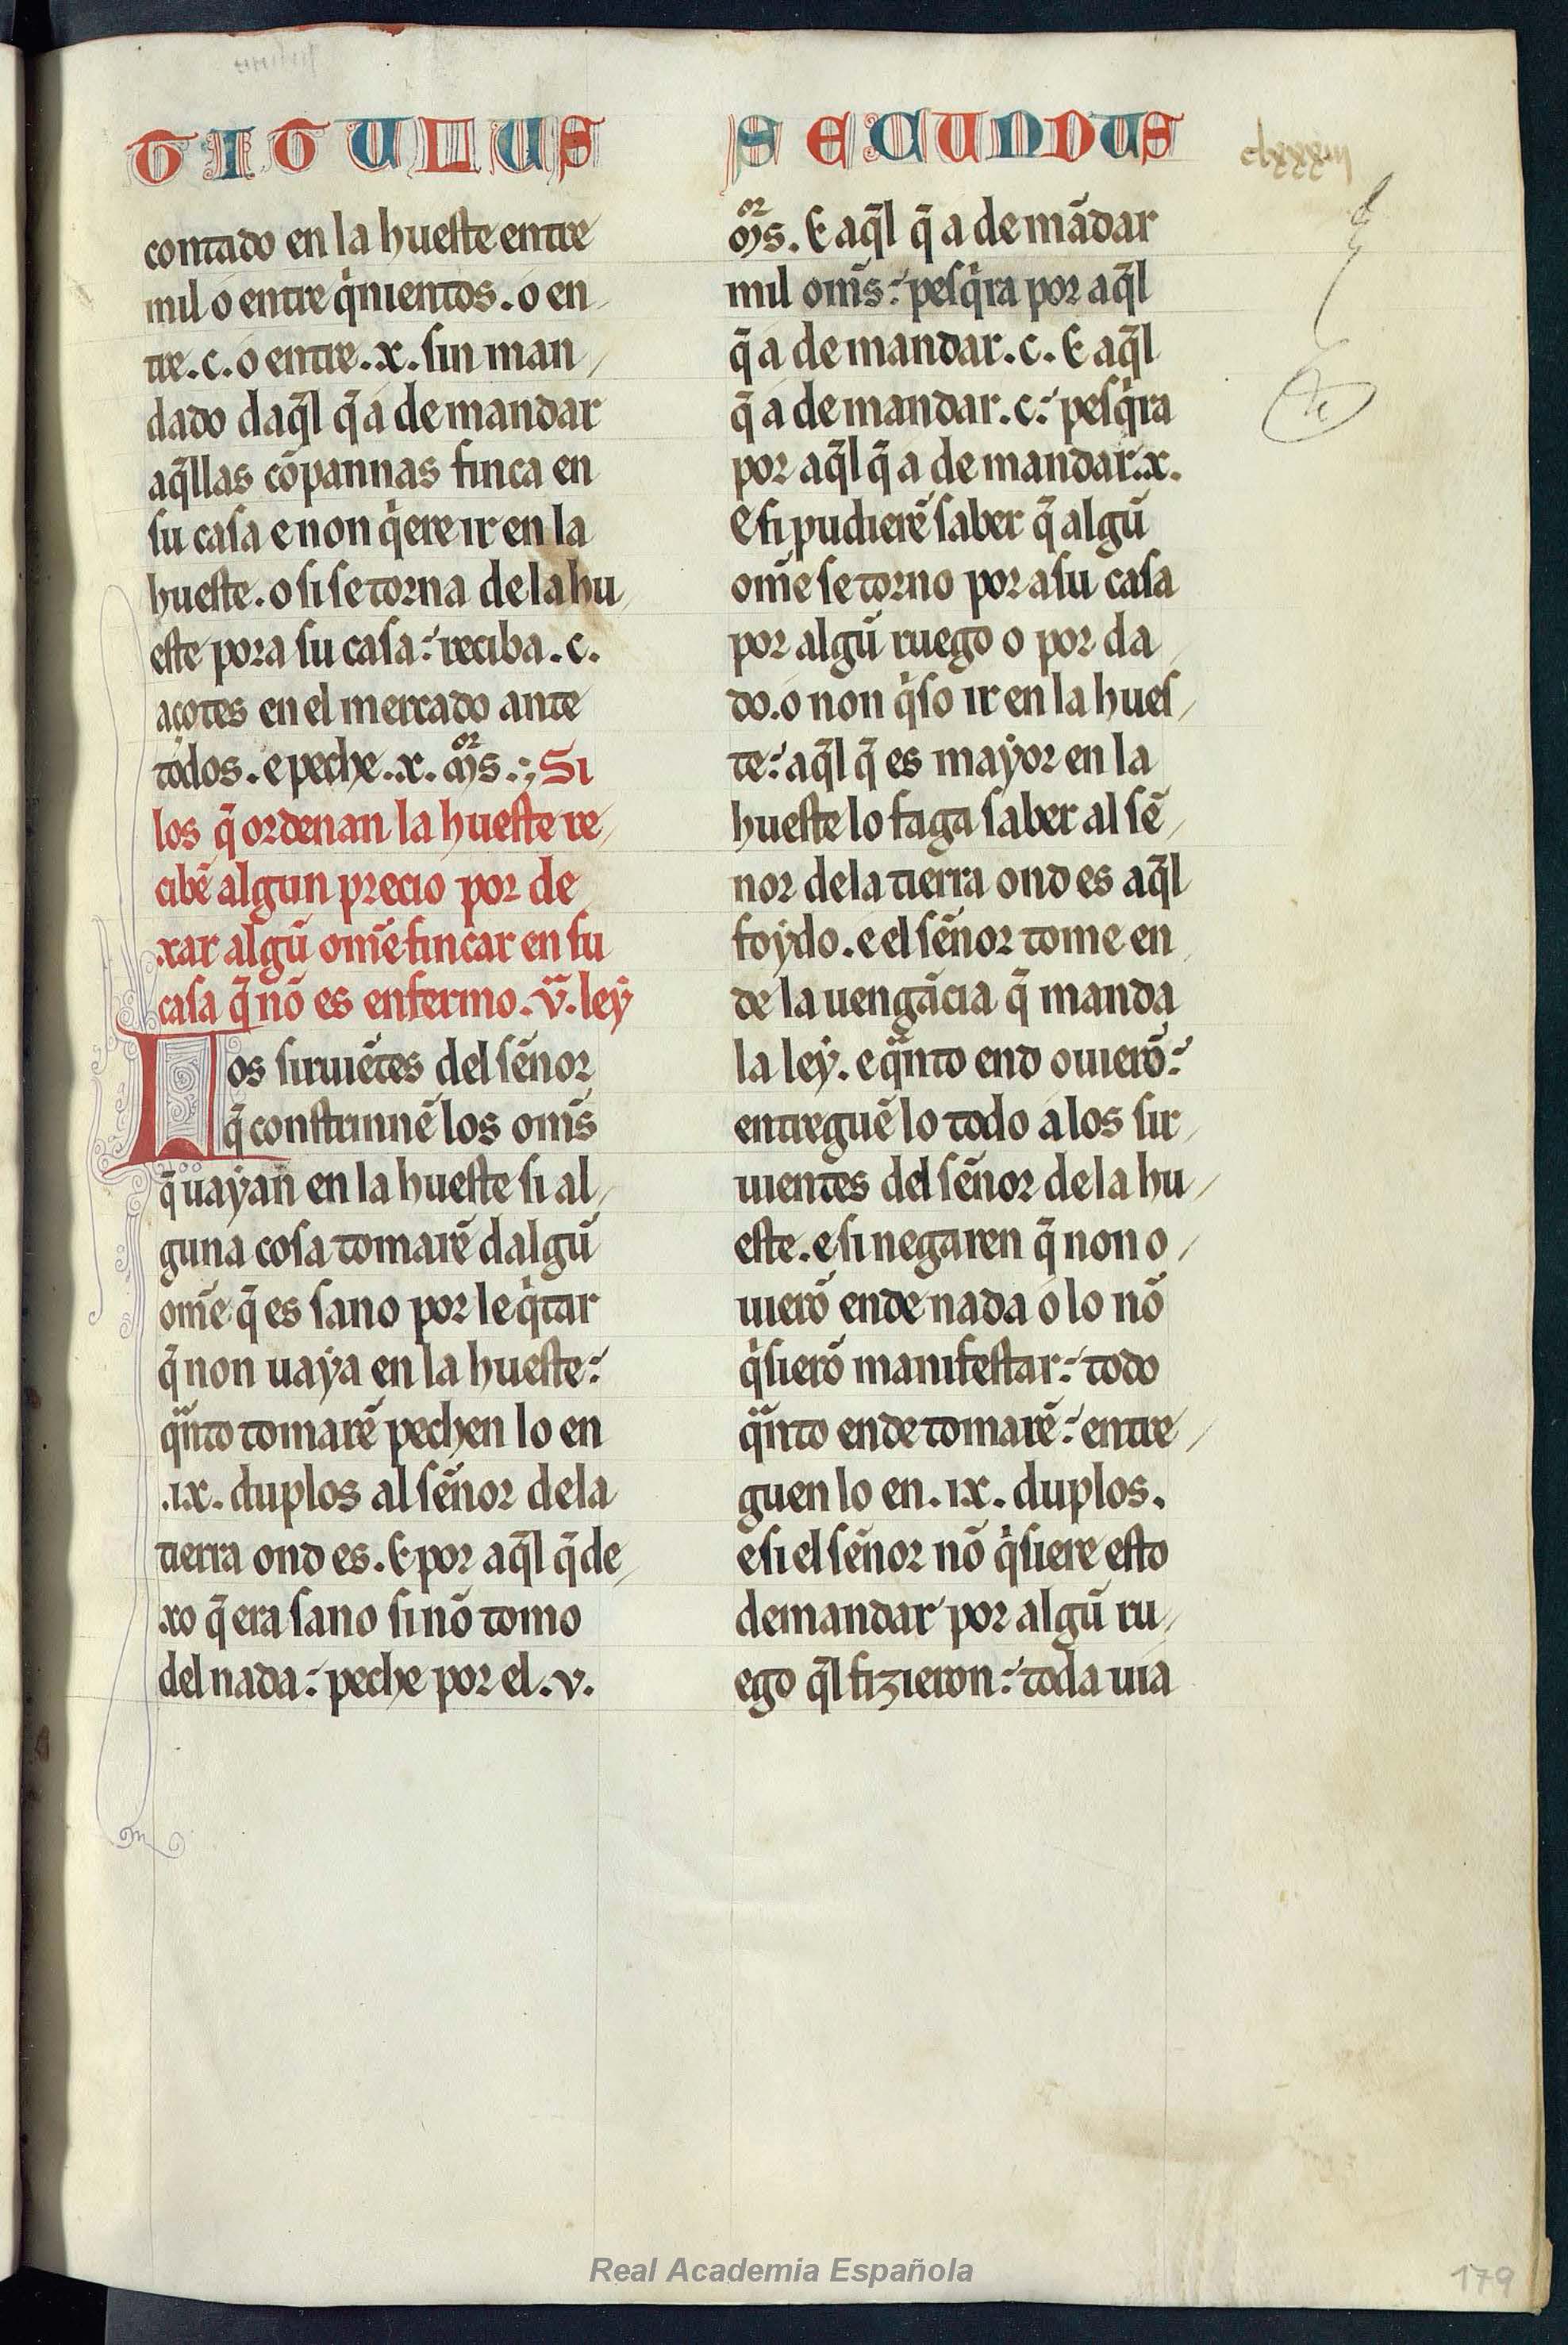 TITULUS SECUNDUS
contado en la hueste entre
mil o entre q̇nientos. o en
tre .c. o entre .x. sin man
dado daq̄l q̄ a de mandar
aq̄llas cōpannas finca en
su casa e non q̇ere ir en la
hueste. o si se torna de la hu
este pora su casa: reciba .c.
açotes en el mercado ante
todos. e peche .x. mr̄s. Si
los q̄ ordenan la hueste re
cibē algun precio por de
xar algū om̄e fincar en su
casa q̄ nō es enfermo. v̄. leẏ
Los siruiētes del sēnor
q̄ constrinnē los om̄s
q̄ uaẏan en la hueste si al
guna cosa tomarē dalgū
om̄e q̄ es sano por le q̇tar
q̄ non uaẏa en la hueste:
qūnto tomarē pechen lo en
.ix. duplos al sēnor de la
tierra ond es. E por aq̄l q̄ de
xo q̄ era sano si nō tomo
del nada: peche por el .v.
mr̄s. E aq̄l q̄ a de mādar
mil om̄s: pesq̇ra por aq̄l
q̄ a de mandar .c. E aq̄l
q̄ a de mandar .c.: pesq̇ra
por aq̄l q̄ a de mandar .x.
E si pudierē saber q̄ algū
om̄e se torno pora su casa
por algū ruego o por da
do. o non q̇so ir en la hues
te: aq̄l q̄ es maẏor en la
hueste lo faga saber al sē
nor de la tierra ond es aq̄l
foẏdo. e el sēnor tome en
de la uengācia q̄ manda
la leẏ. e qūnto end ouierō:
entreguē lo todo a los sir
uientes del sēnor de la hu
este. e si negaren q̄ non o
uierō ende nada o lo nō
q̇sierō manifestar: todo
qūnto ende tomarē: entre
guen lo en .ix. duplos.
e si el sēnor nō q̇siere esto
demandar por algū ru
ego q̄l fizieron: toda uia
clxxxiii
Real Academia Española
179